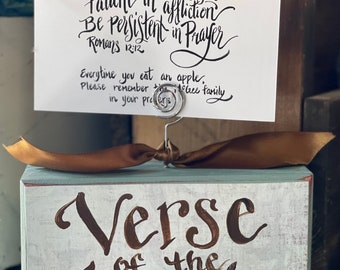 Patient in affliction
Be Persistent in Prayer
Romans 12:12
Everytime you eat an apple,
Please remember the McGee Family
in your prayers.
Verse
of the